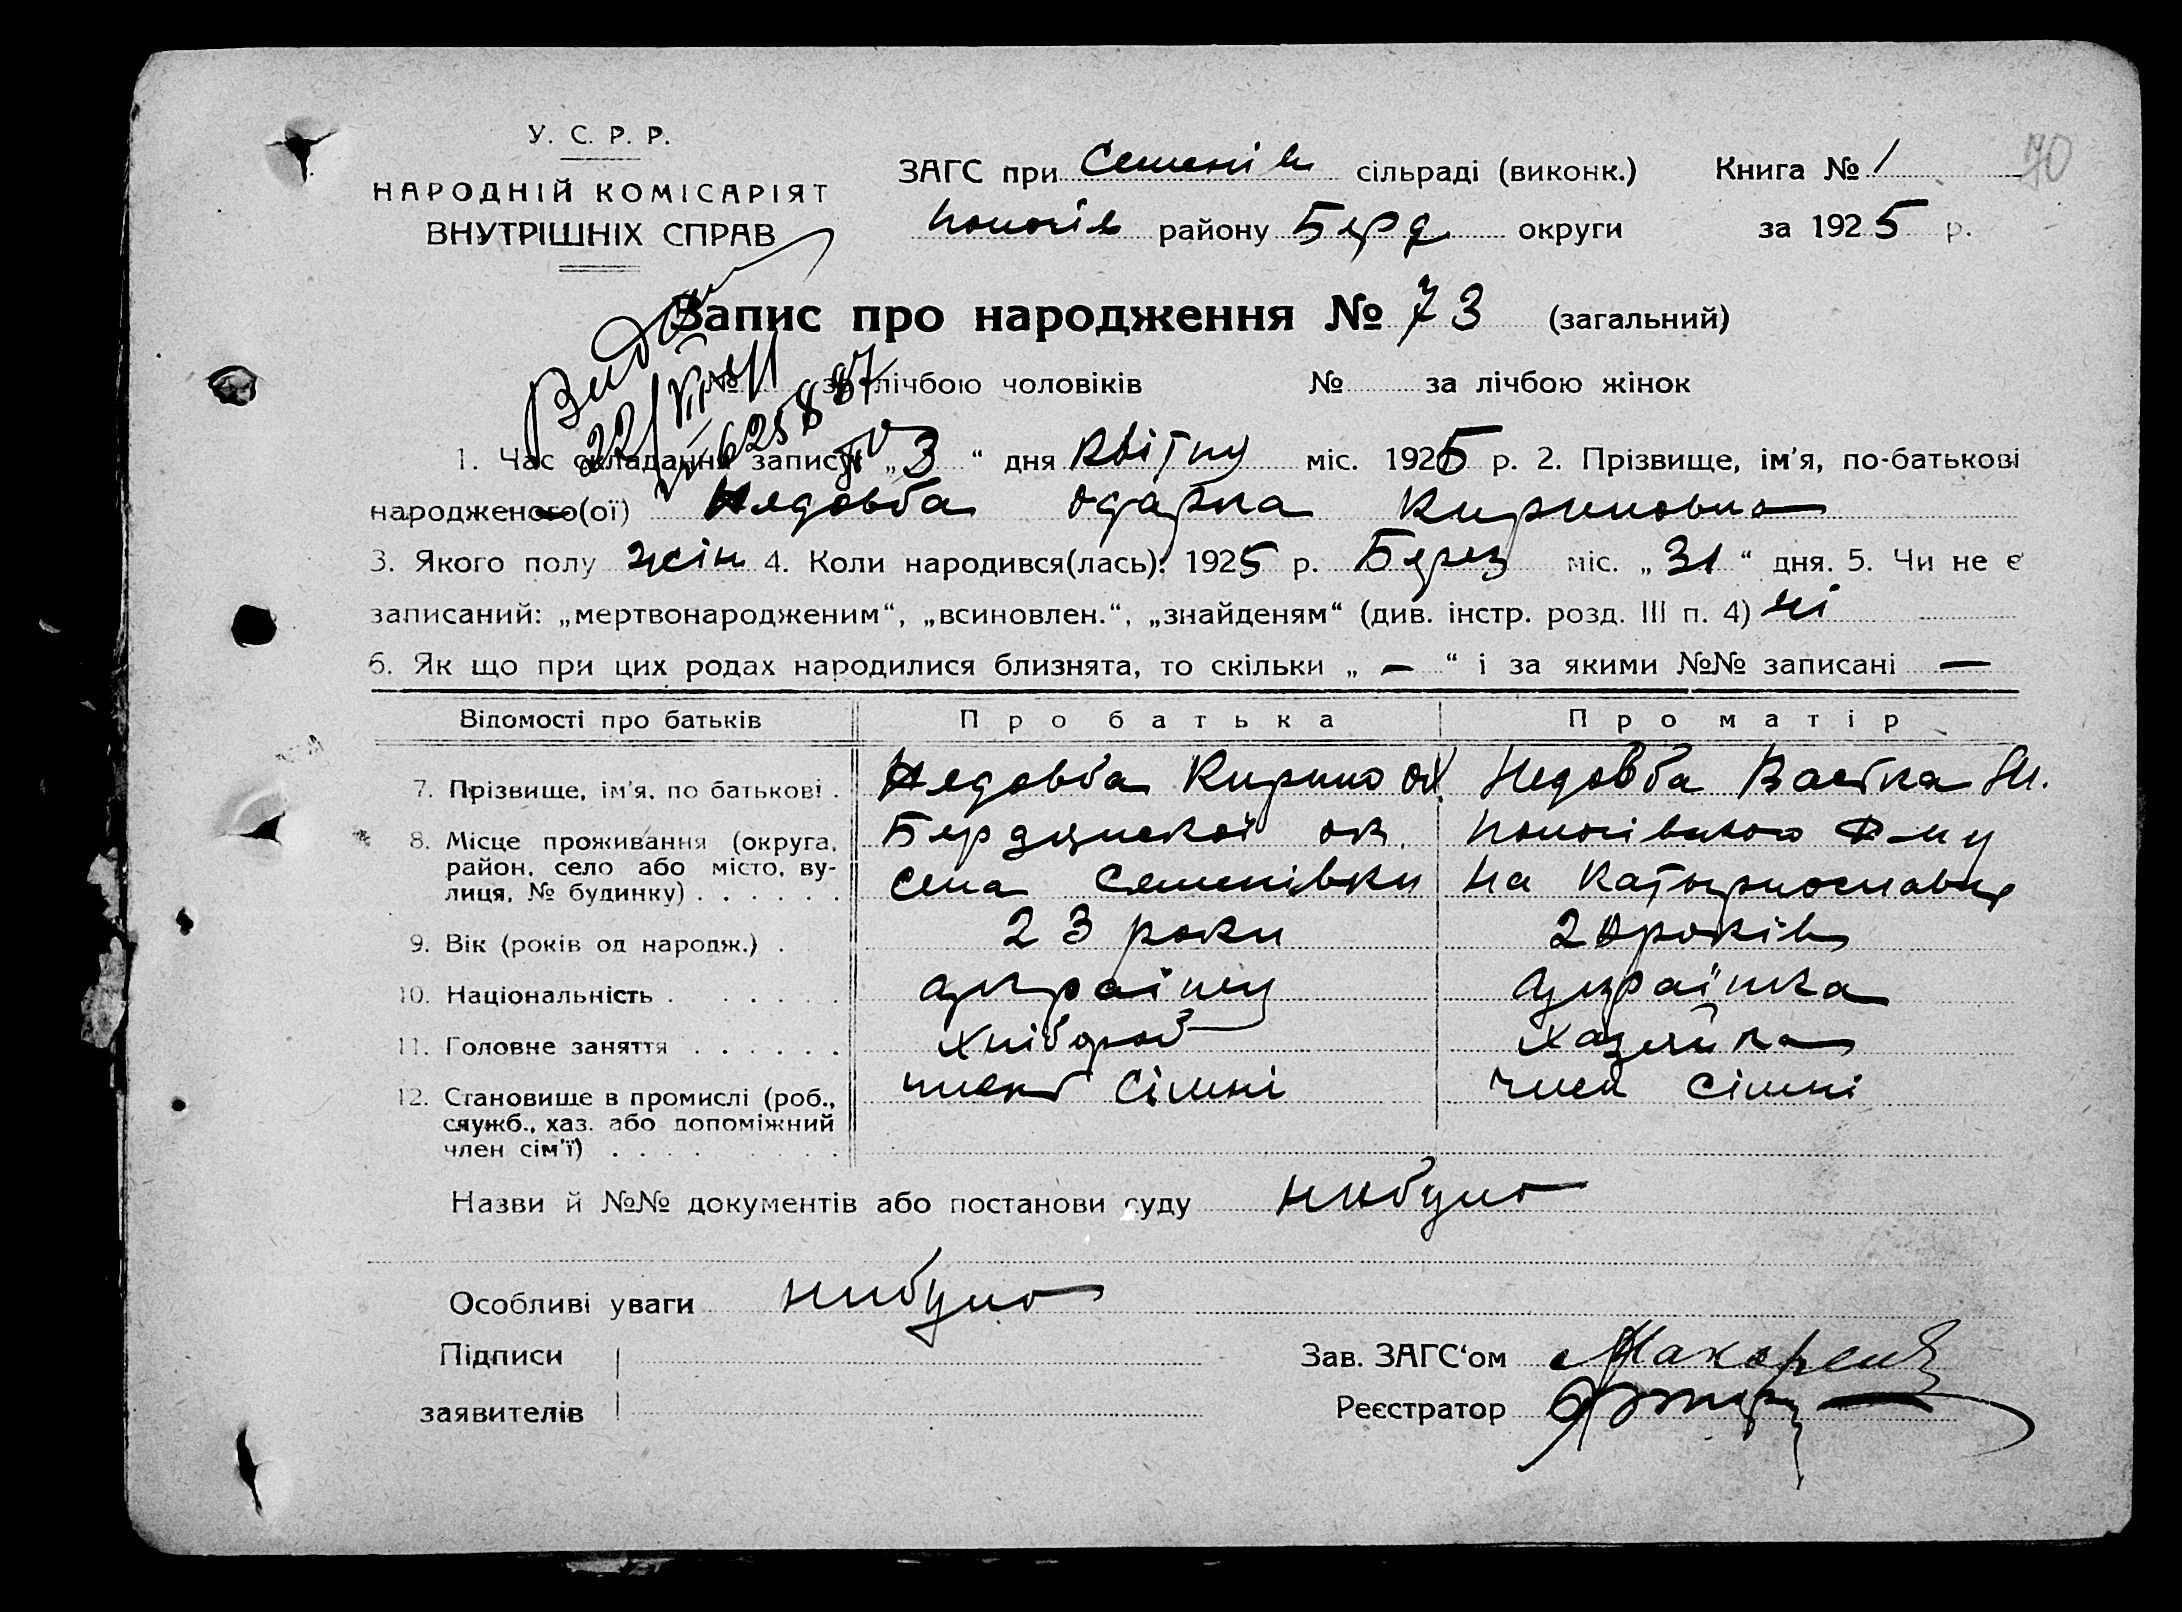 70
У. С. Р. Р.
НАРОДНІЙ КОМІСАРІЯТ
ВНУТРІШНІХ СПРАВ
ЗАГС при Семенів сільраді (виконк.) Книга № 1
Пологів району Берд округи за 1925 р.
Запис про народження № 73 (загальний)
№ за лічбою чоловіків № за лічбою жінок
1. Час складання запису „3“ дня Квітну міс. 1925 р. 2. Прізвище, ім'я, по-батькові
народженого(ої) Недовба Одарка Кириловна
3. Якого полу жін 4. Коли народився(лась): 1925 р. Берез міс. „31“ дня. 5. Чи не є
записаний: „мертвонародженим“, „всиновлен.“, „знайденям“ (див. інстр. розд. III п. 4) ні
6. Як що при цих родах народилися близнята, то скільки „ — “ і за якими №№ записані —
Відомості про батьків Про батька Про матір
7. Прізвище, ім'я, по батькові . Недовба Кирило Недовба Васька
8. Місце проживання (округа, район, село або місто, вулиця, № будинку) . . . . . .
Бердянської ок. Пологівського
села Семенівки на Катыринославці
9. Вік (років од народж.) . 23 роки 20 років
10. Національність . . . . . . украінец украінка
11. Головне заняття . . . . . . хлібороб хазяйка
12. Становище в промислі (роб., служб., хаз. або допоміжний член сім'ї) . . . . . . . член сімні член сімні
Назви й №№ документів або постанови суду нибуло
Особливі уваги нибуло
Підписи Зав. ЗАГС‘ом Макарен
заявителів Реєстратор